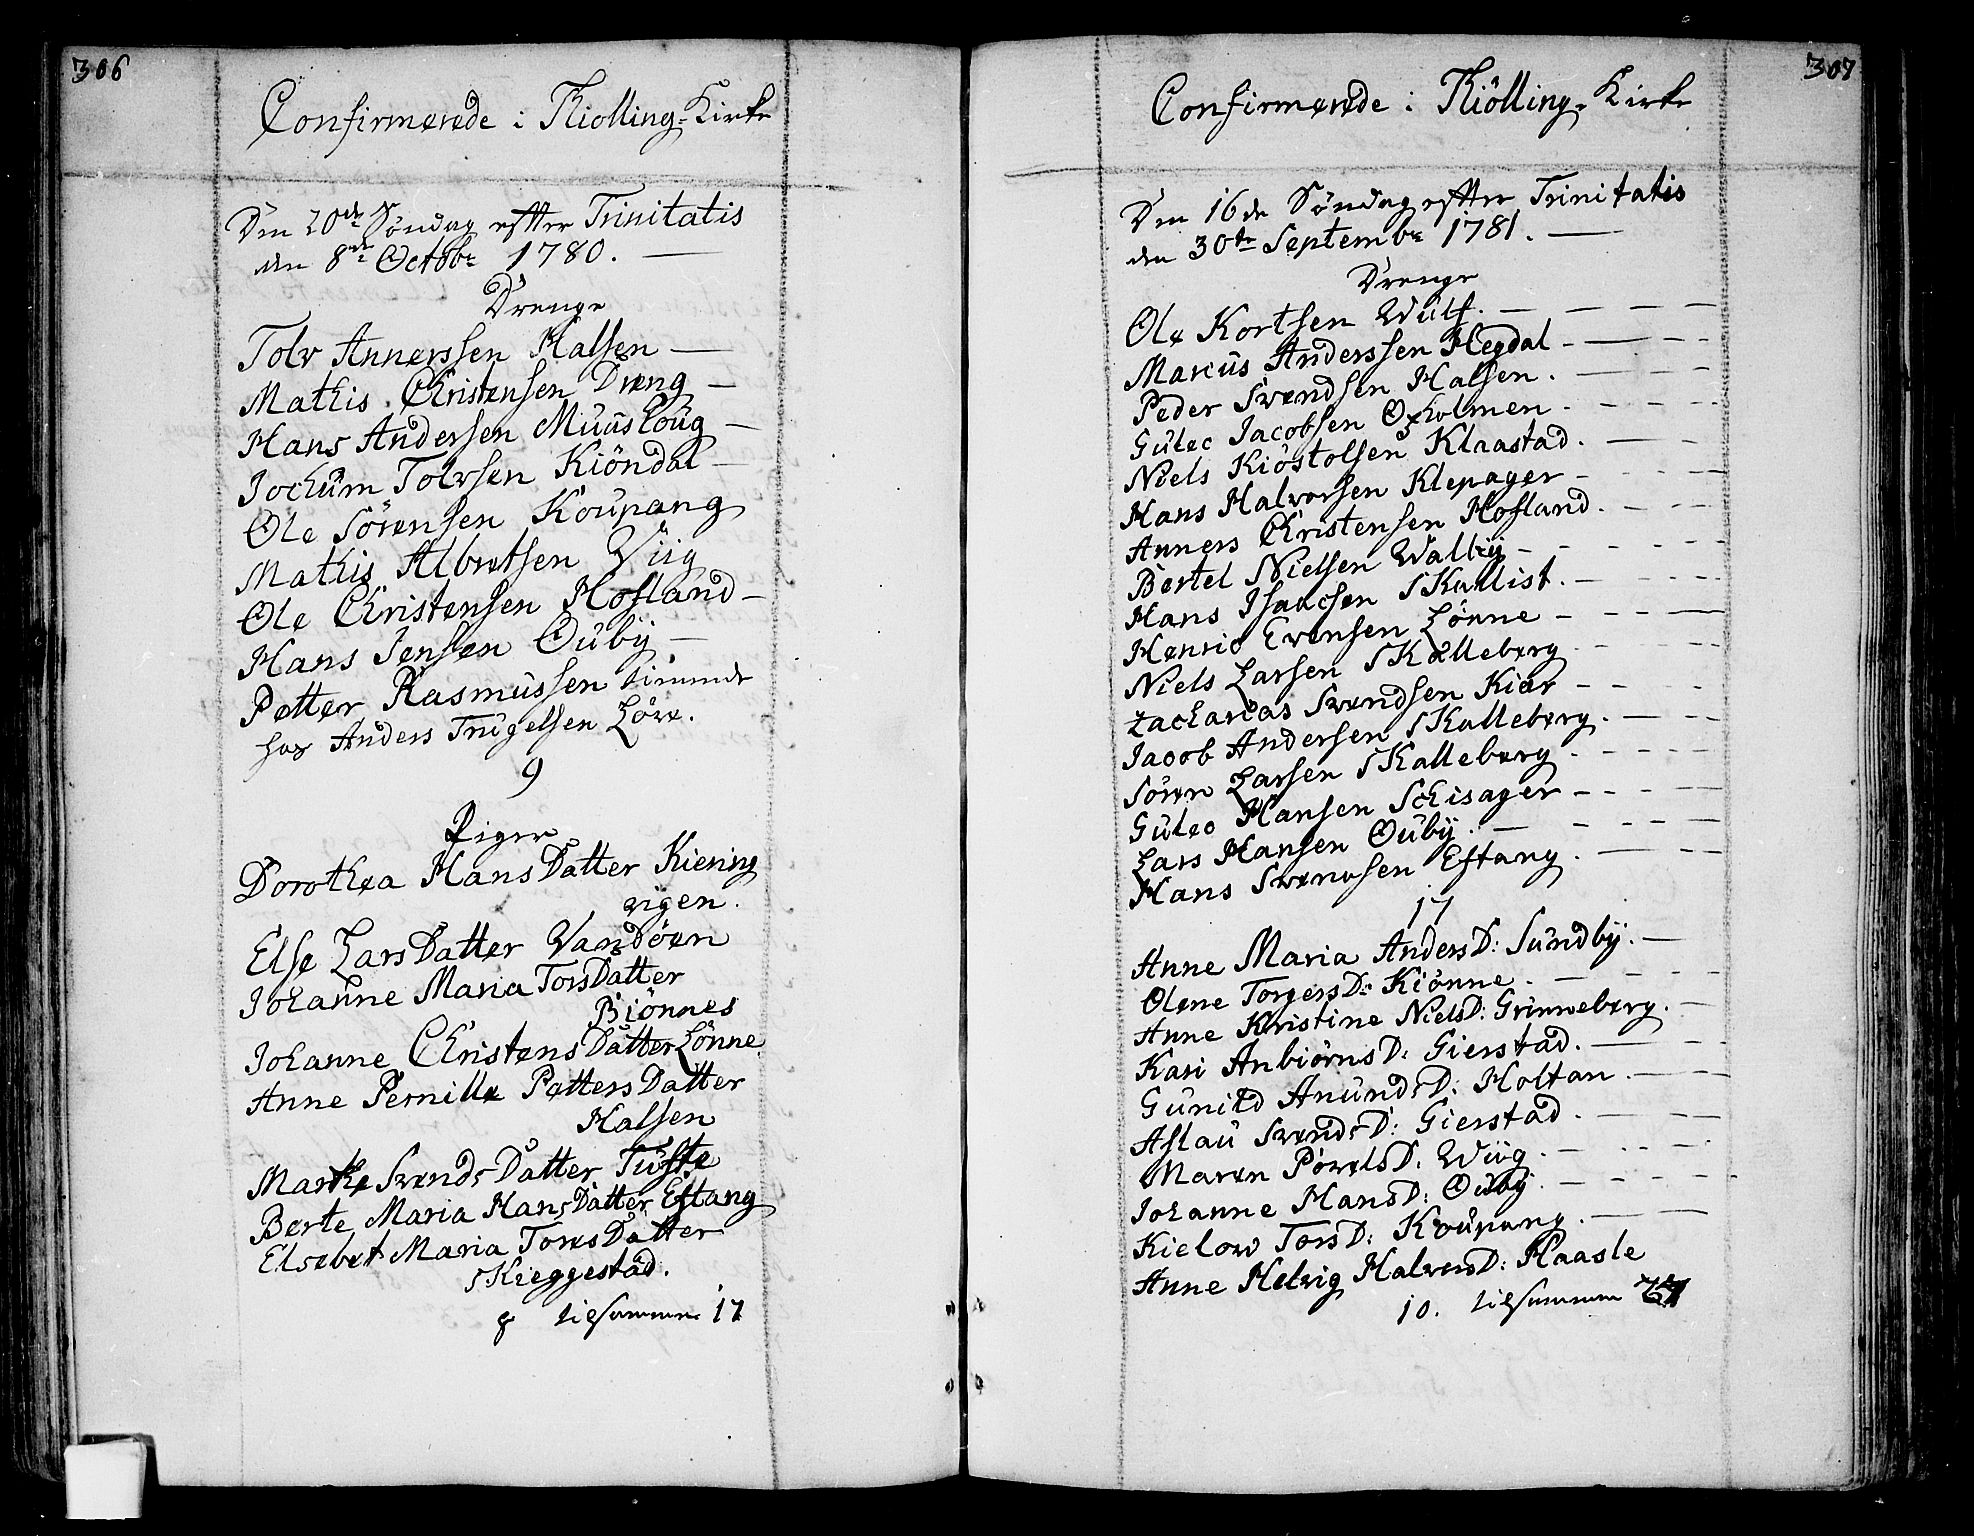 306
Confirmerede i Thiolling-Kirke
Den 20de Söndag efter Trinitatis
den 8de Octobr 1780.
Drenge
Tolv Annerssen Halsen
Mathis Christensen Dreng
Hans Andersen Muusloug
Jochum Tolvsen Kiöndal
Ole Sörensen Koupang
Mathis Albretsen Viig
Ole Christensen Hofland
Hans Jensen Ouby
Petter Rasmussen tienende
hos Anders Trugelsen Löve.
9
Piger
Dorothea HansDatter Kiening
vigen.
Else LarsDatter Vandöen
Johanne Maria TorsDatter
Biönnes
Johanne ChristensDatter Lönne
Anne Pernille PettersDatter
Halsen
Marthe SvendsDatter Tufte
Berte Maria HansDatter Eftang
Elsebet Maria ToresDatter
SKieggestad.
8 tilsammen 17
307
Confirmerede i Thiölling-Kirke
Den 16de Söndag efter Trinitatis
den 30te Septembr 1781.
Drenge
Ole Kortsen Wulf.
Marcus Anderssen Hegdal
Peder Svendsen Halsen.
Gulec Jacobsen Oxholmen
Niels Kiöstolsen Klaastad.
Hans Halvorsen Klepager
Anners Christensen Hofland.
Bertel Nielsen Walby
Hans Isaacsen SKallist.
Henric Evensen Lönne
Niels Larsen SKalleberg
Zacharias Svendsen Kiær
Jacob Andersen SKalleberg.
Sören Larsen SKalleberg
Gulec Hansen Schisager
Lars Hansen Ouby.
Hans Svenssen Eftang.
17
Anne Maria AndersD: Sundby.
Olene TorgersD: Kiönne.
Anne Kristine NielsD: Grinneberg.
Kari AnbiörnsD: Gierstad.
Gunild AnundsD: Holtan
Aslau SvendsD: Gierstad.
Maren PovelsD. Wiig.
Johanne HansD: Ouby.
Kielow TorsD: Koupang.
Anne Helvig HalvorsD: Haasle
10. tilsammen 27